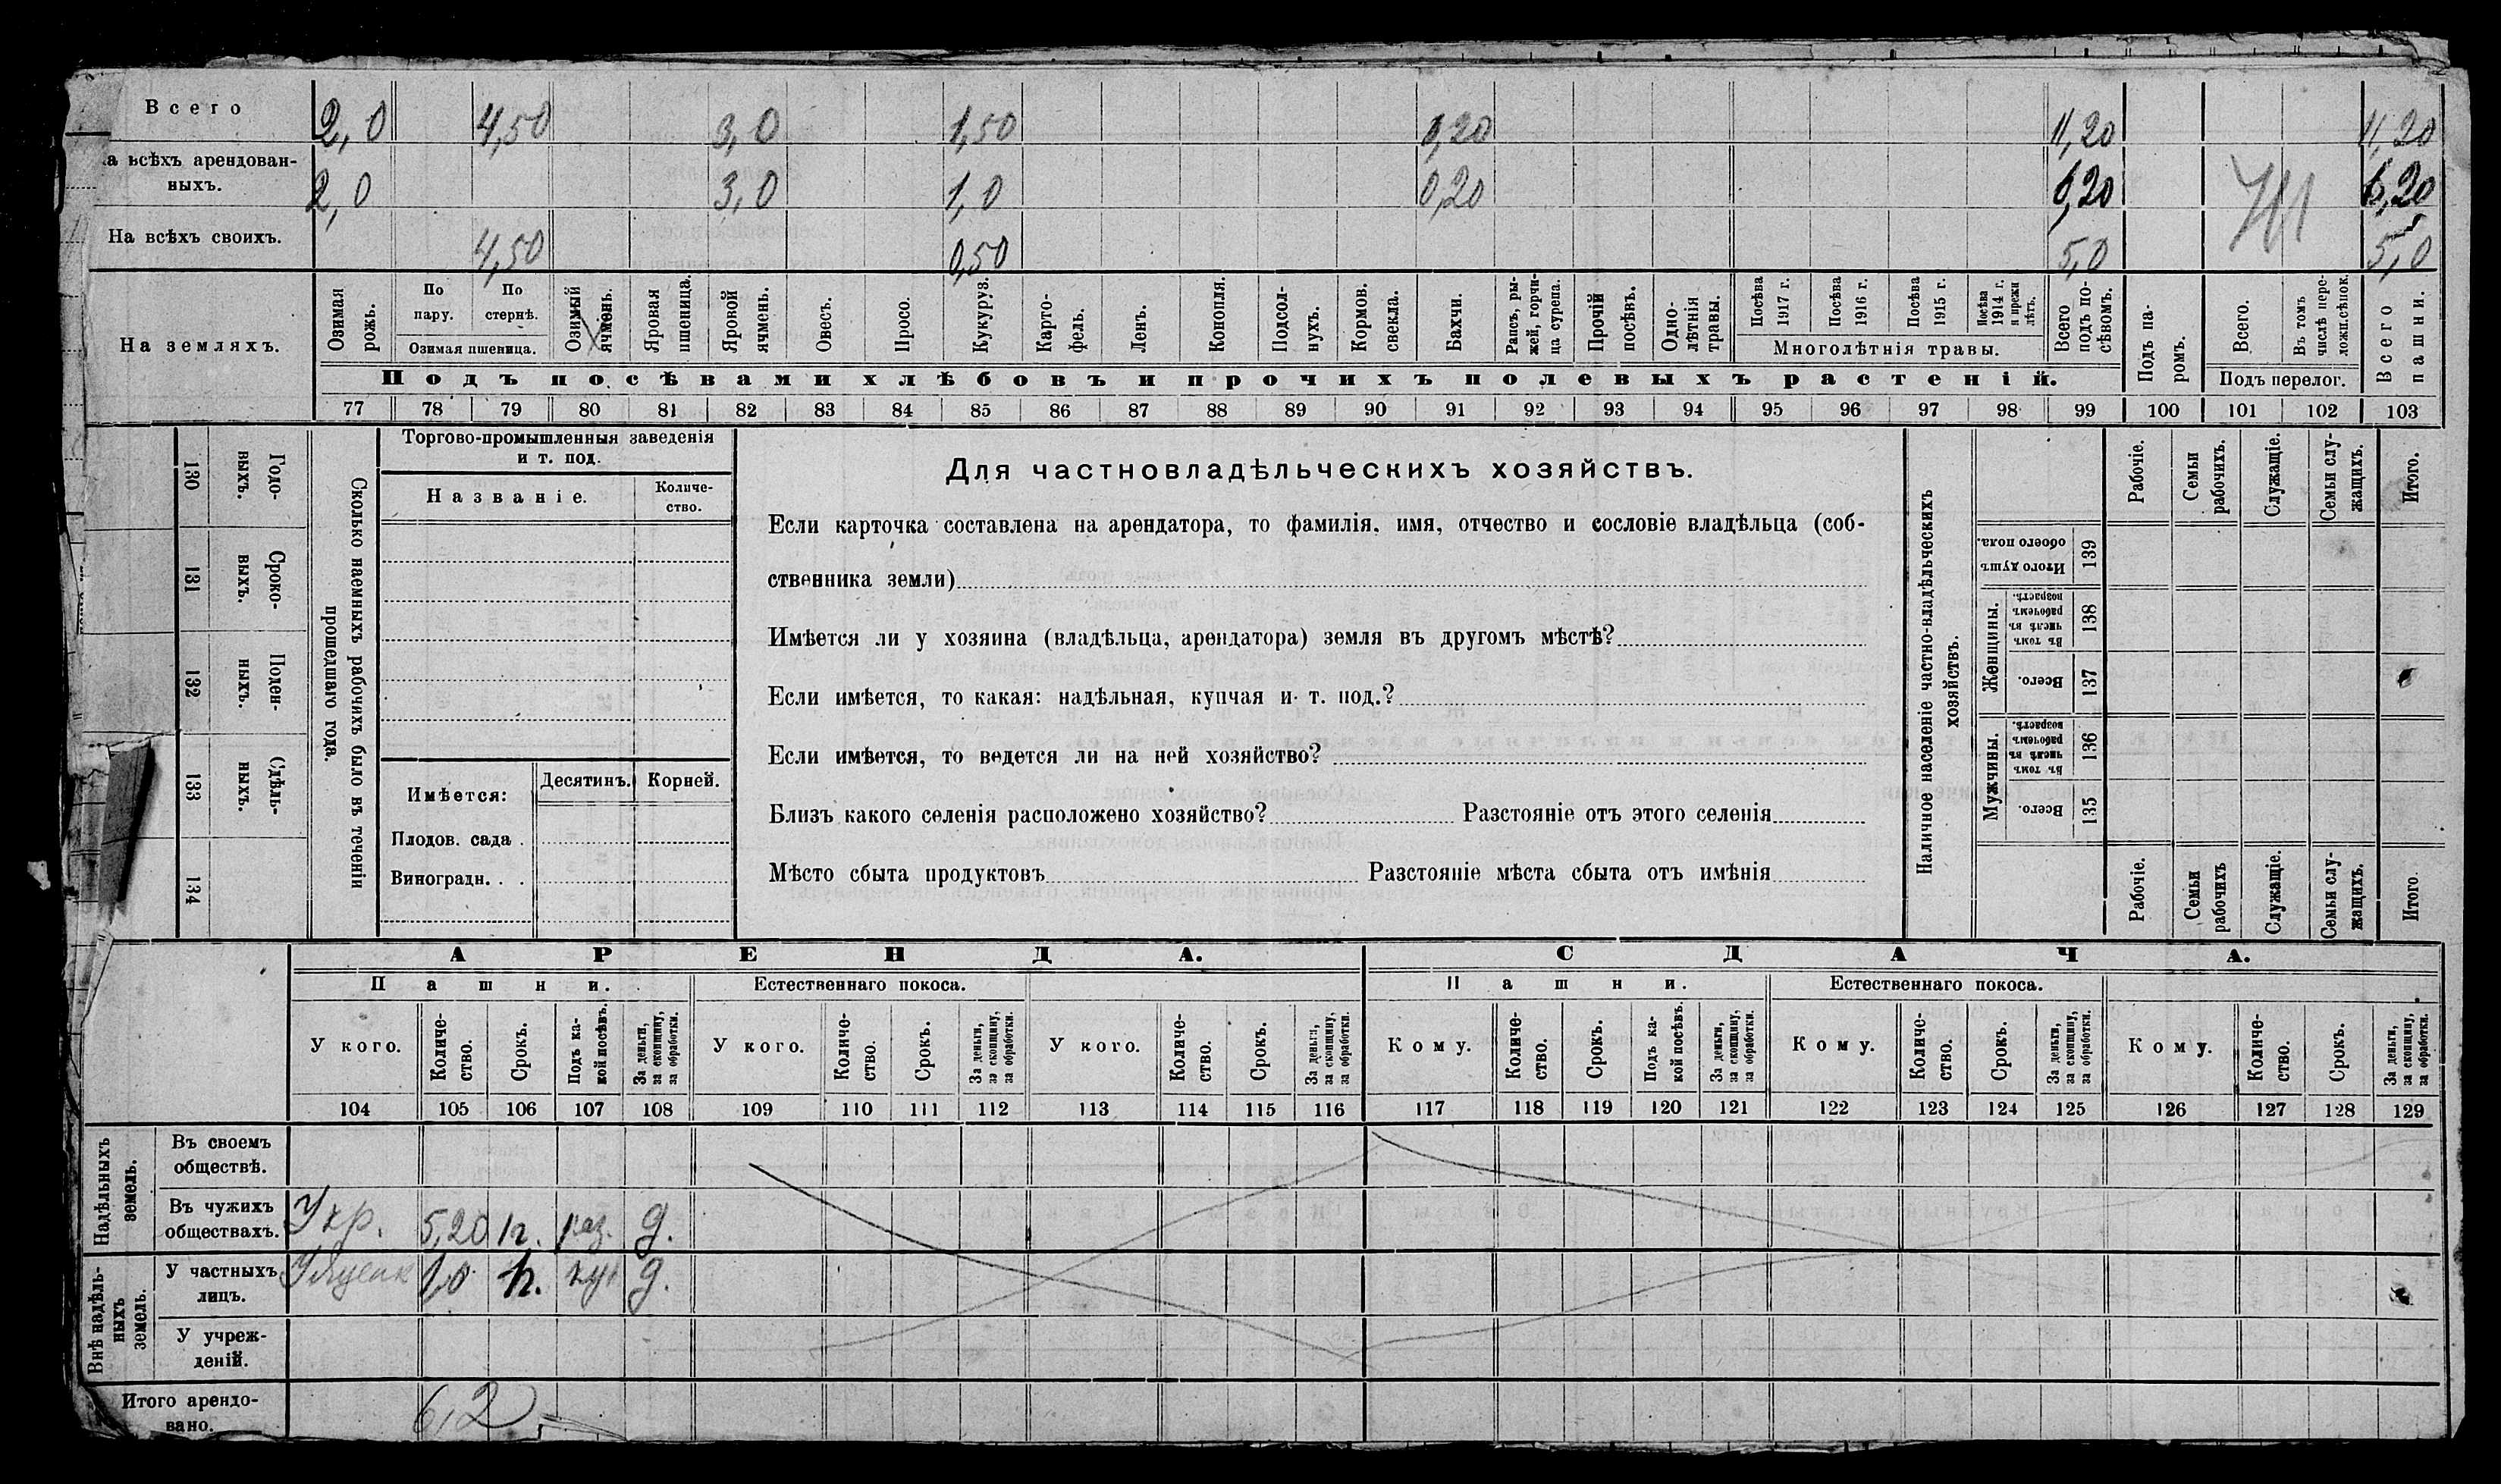 Всего 2,0 4,50 3,0 1,50 0,20 11,20 11,20
на всѣхъ арендован-
ныхъ. 2,0 3,0 1,0 0,20 6,20 6,20
На всѣхъ своихъ. 4,50 0,50 5,0 5,0
На земляхъ.
Озимая рожь.
По пару.
По стернѣ.
Озимая пшеница.
Озимый ячмень.
Яровая пшеница.
Яровой ячмень.
Овесъ.
Просо.
Кукуруз.
Карто-
фель.
Ленъ.
Конопля.
Подсол-
нухъ.
Кормов.
свекла.
Бахчи.
Рапсъ, ры-
жей, горчи-
ца сурепа.
Прочій
посѣвъ.
Одно-
лѣтнія
травы.
Посѣва
1917 г.
Посѣва
1916 г.
Посѣва
1915 г.
Посѣва
1914 г.
и прежн
лѣтъ.
Многолѣтнія травы.
Всего
подъ по-
сѣвомъ.
Подъ па-
ромъ.
Всего.
Въ томъ
числѣ пере-
ложн.сѣнок.
Подъ перелог.
Всего
пашни.
Подъ посѣвами хлѣбовъ и прочихъ полевыхъ растеній.
77 78 79 80 81 82 83 84 85 86 87 88 89 90 91 92 93 94 95 96 97 98 99 100 101 102 103
130 Годо-
выхъ.
131 Сроко-
выхъ.
132 Поден-
ныхъ.
133 Сдѣль-
ныхъ.
134
Сколько наемныхъ рабочихъ было въ теченіи
прошедшаго года.
Торгово-промышленныя заведенія
и т. под.
Названіе.
Количе-
ство.
Имѣется:
Десятинъ.
Корней.
Плодов. сада .
Виноградн. . .
Для частновладѣльческихъ хозяйствъ.
Если карточка составлена на арендатора, то фамилія, имя, отчество и сословіе владѣльца (соб-
ственника земли)
Имѣется ли у хозяина (владѣльца, арендатора) земля въ другомъ мѣстѣ?
Если имѣется, то какая: надѣльная, купчая и т. под.?
Если имѣется, то ведется ли на ней хозяйство?
Близъ какого селенія расположено хозяйство? Разстояніе отъ этого селенія
Мѣсто сбыта продуктовъ Разстояніе мѣста сбыта отъ имѣнія
Наличное населеніе частно-владѣльческихъ
хозяйствъ.
Рабочіе.
Семьи
рабочихъ.
Служащіе.
Семьи слу-
жащихъ.
Итого.
Итого душъ
обоего пола.
139
Женщины.
Въ томъ
числѣ въ
рабочемъ
возрастѣ.
138
Всего.
137
Мужчины.
Въ томъ
числѣ въ
рабочемъ
возрастѣ.
136
Всего.
135
Рабочіе.
Семьи
рабочихъ
Служащіе.
Семьи слу-
жащихъ.
Итого.
АРЕНДА. СДАЧА.
Пашни. Естественнаго покоса. Пашни. Естественнаго покоса.
У кого.
Количе-
ство.
Срокъ.
Подъ ка-
кой посѣвъ.
За деньги,
за скопщину,
за обработки.
У кого.
Количе-
ство.
Срокъ.
За деньги,
за скопщину,
за обработки.
У кого.
Количе-
ство.
Срокъ.
За деньги,
за скопщину,
за обработки.
Кому.
Количе-
ство.
Срокъ.
Подъ ка-
кой посѣвъ.
За деньги,
за скопщину,
за обработки.
Кому.
Количе-
ство.
Срокъ.
За деньги,
за скопщину,
за обработки.
Кому.
Количе-
ство.
Срокъ.
За деньги,
за скопщину,
за обработки.
104 105 106 107 108 109 110 111 112 113 114 115 116 117 118 119 120 121 122 123 124 125 126 127 128 129
Надѣльныхъ
земель.
Въ своемъ
обществѣ.
Въ чужихъ
обществахъ. У кр. 5,20 1г. раз. д.
Внѣ надѣль-
ныхъ
земель.
У частныхъ
лицъ. 1,0 д.
У учреж-
деній.
Итого арендо-
вано. 6,2